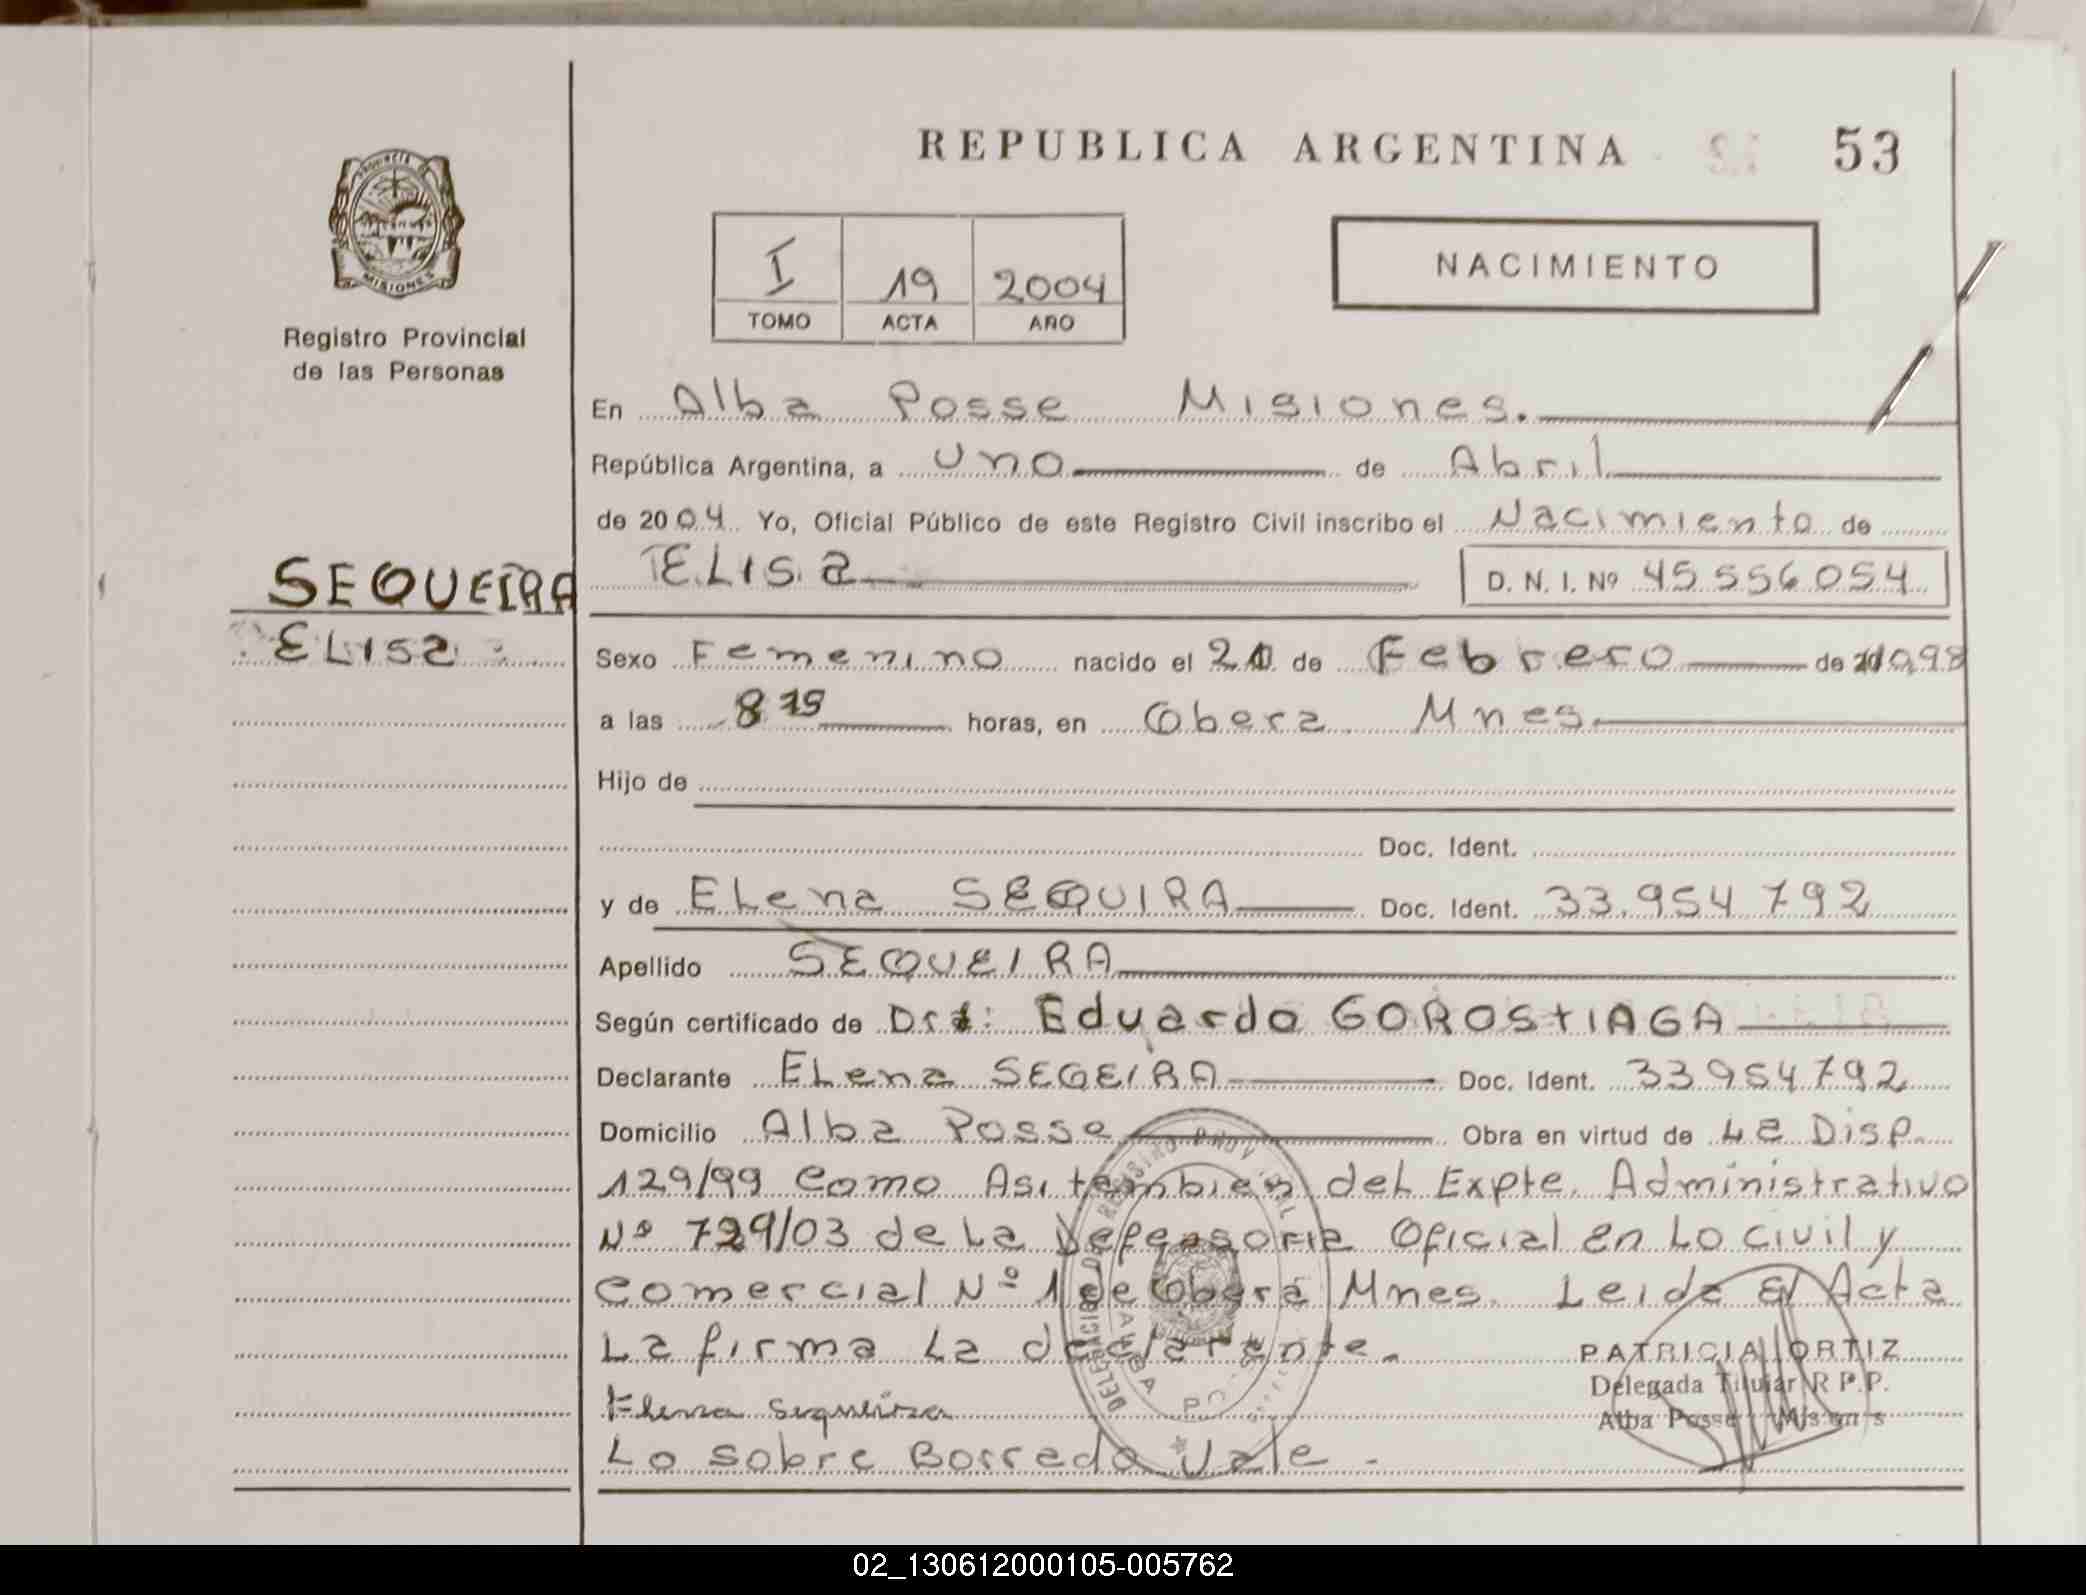 REPUBLICA ARGENTINA 53
PROVINCIA
MISIONES
Registro Provincial
de las Personas
I 19 2004
TOMO ACTA AÑO
NACIMIENTO
En Alba Posse Misiones.
República Argentina, a uno de Abril
de 2004 Yo, Oficial Público de este Registro Civil inscribo el Nacimiento de
ELISA D. N. I. Nº 45.556.054
SEQUEIRA
ELISA
Sexo Femenino nacido el de Febrero de
a las 8 15 horas, en Obera Mnes.
Hijo de
Doc. Ident.
y de ELena SEQUIRA Doc. Ident. 33.954 792
Apellido SEQUEIRA
Según certificado de Eduardo GOROStIAGA
Declarante ELena SEGEIRA Doc. Ident. 33954792
Domicilio Alba Posse Obra en virtud de La Disp.
129/99 Como Asi tambien del Expte. Administrativo
Nº 729/03 de La Defensoria Oficial en Lo civil y
Comercial Nº 1 de Oberá Mnes. Leida El Acta
La firma La declarante.
PATRICIA ORTIZ
Delegada Titular R.P.P.
Alba Posse Misiones
Elena Sequeira
Lo sobre Borrado Vale.
02_130612000105-005762